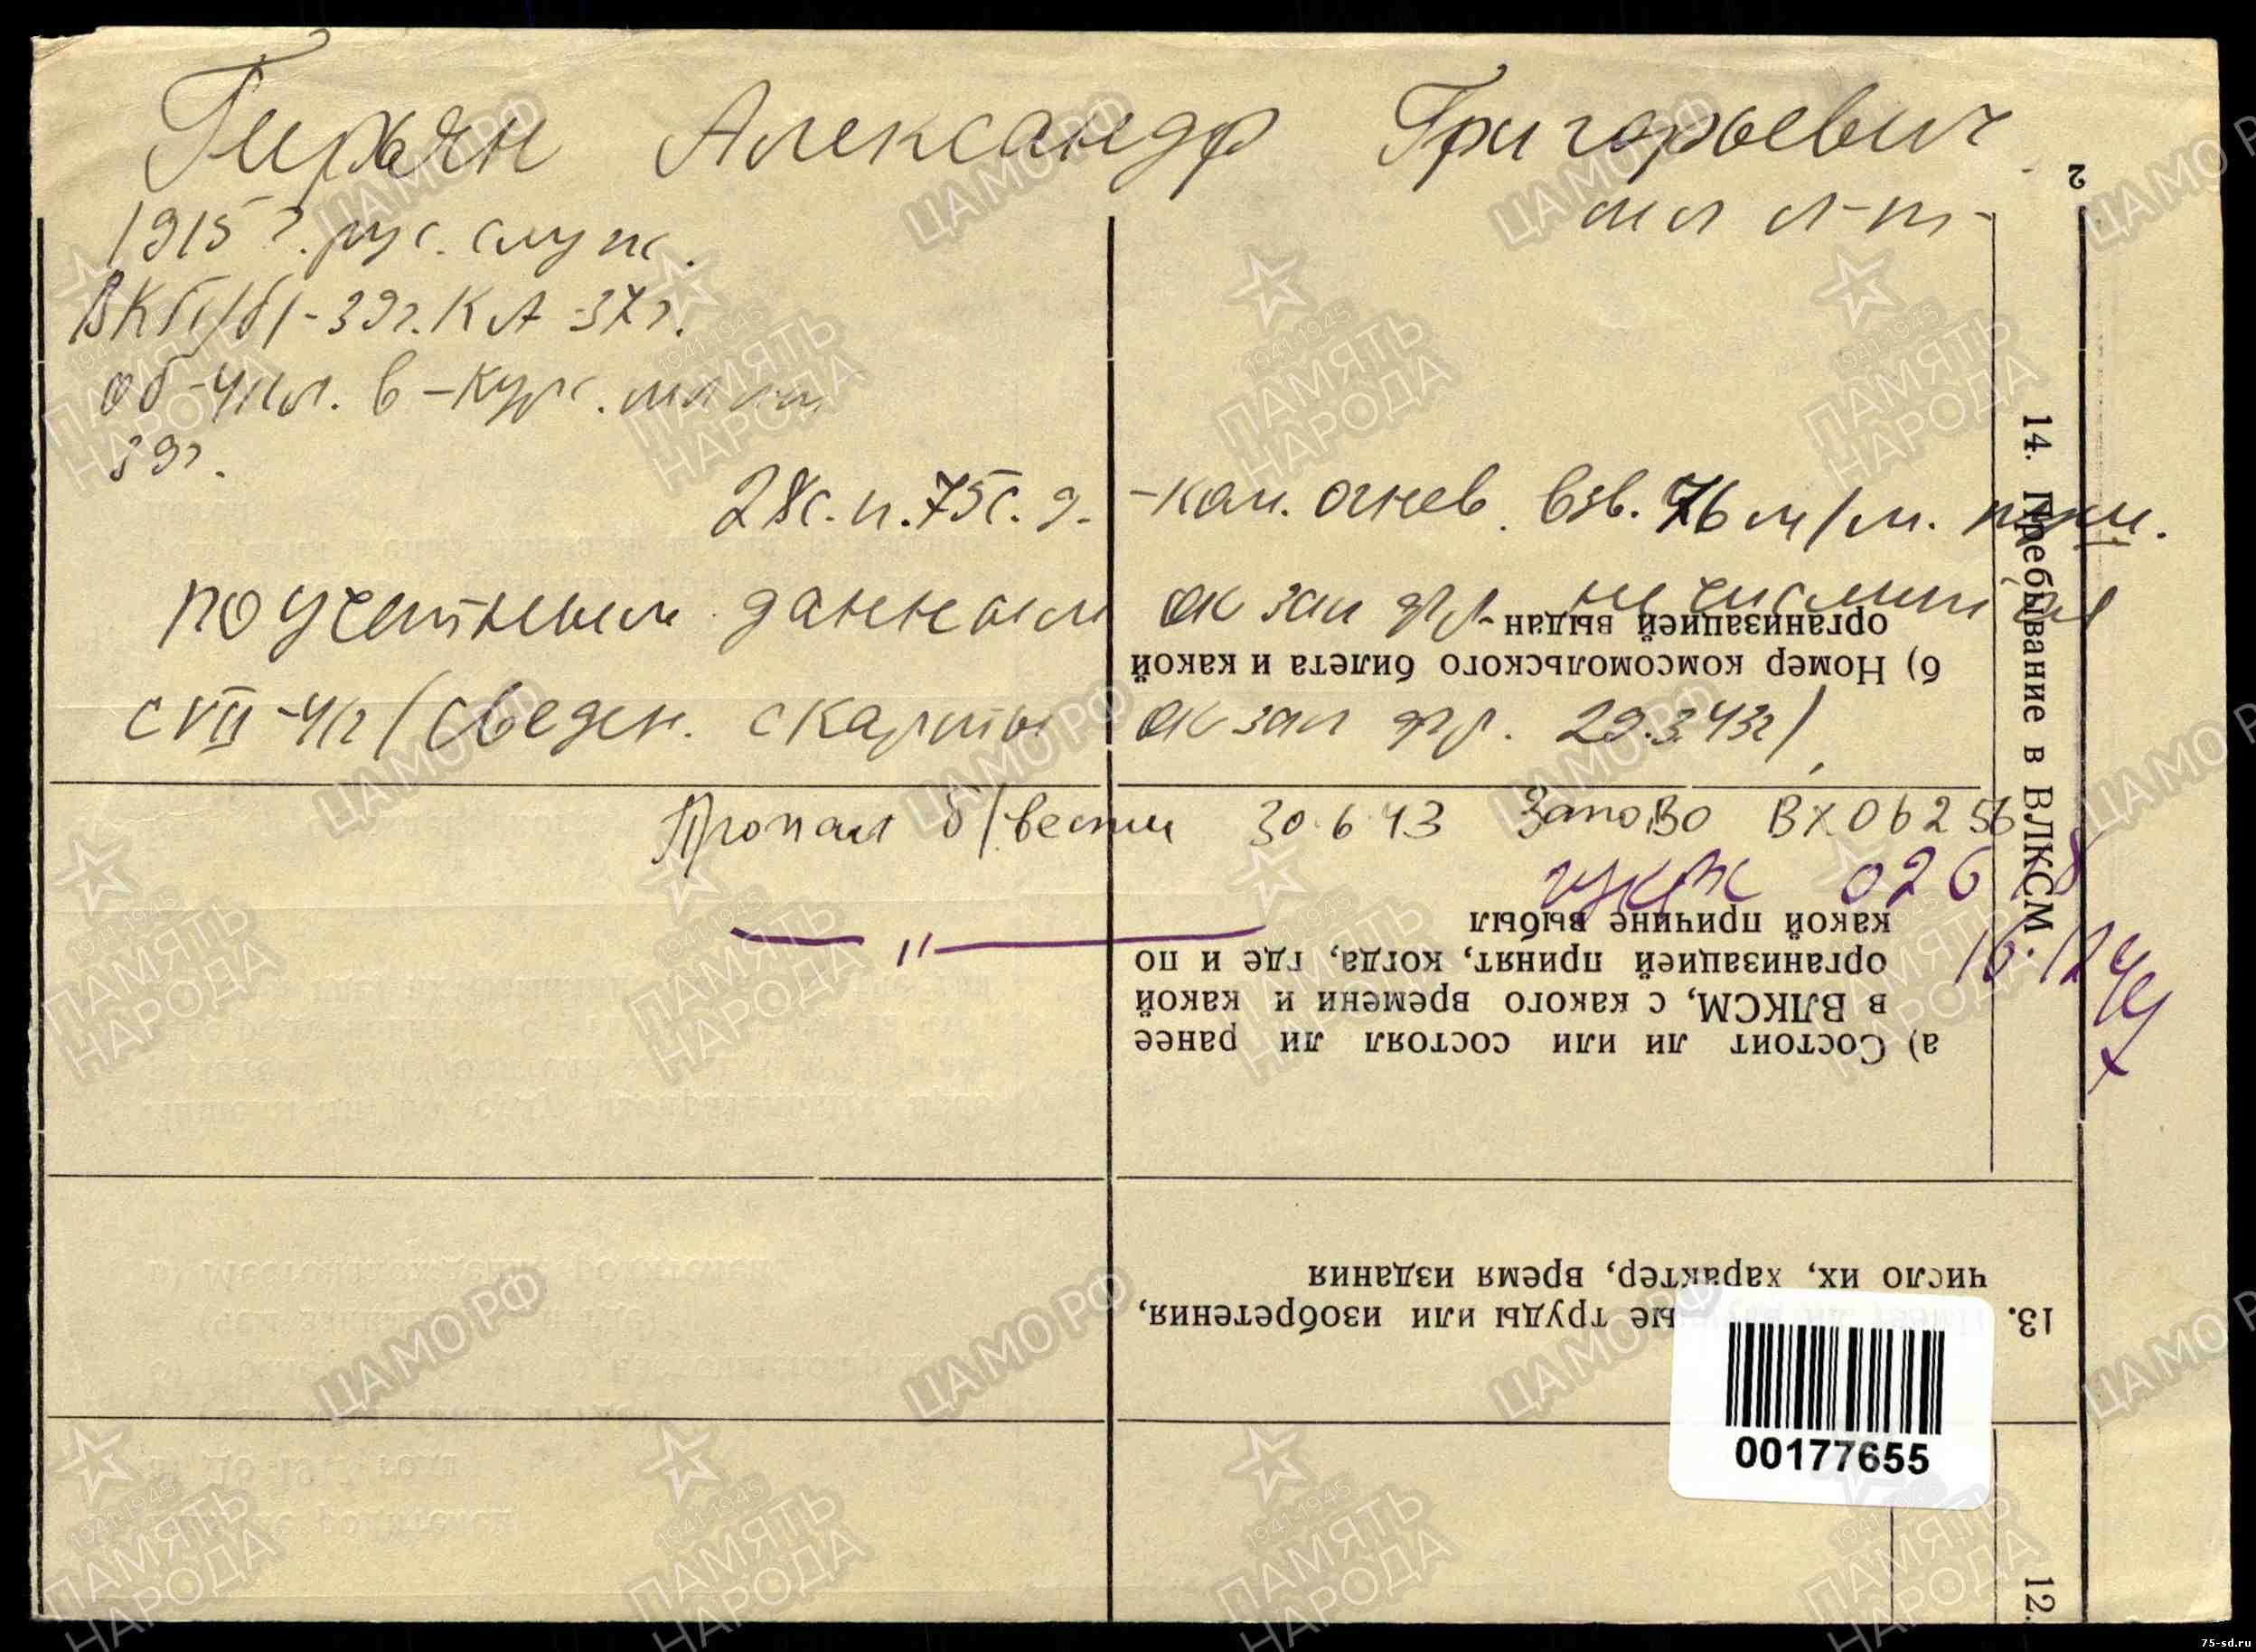 Гирьян Александр Григорьевич
мл л-т
1915 г. рус. служ.
ВКП/б/-39г. КА-37г.
об-4кл. в-кур. мл л-т
39г.
28с.п. 75с.д. -ком. огнев. взв. 76 м/м. пуш.
по учетным данным ок зап фр. не числится
с VII-41г (сведен. с карты ок зап фр. 29.3.43г)
Пропал б/вести 30.6.43 ЗапОВО ВХ 06256
— " —
ГУКНКО 026
16.12 44
2
14. Пребывание в ВЛКСМ
а) Состоит ли или состоял ли ранее
в ВЛКСМ, с какого времени и какой
организацией принят, когда, где и по
какой причине выбыл
б) Номер комсомольского билета и какой
организацией выдан
13.
ые труды или изобретения,
число их, характер, время издания
12.
00177655
ЦАМО РФ
1941-1945
ПАМЯТЬ
НАРОДА
75-sd.ru